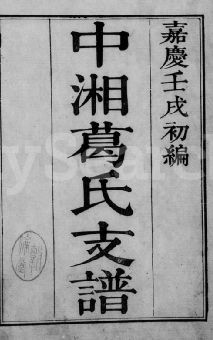 嘉慶壬戌初編
中湘葛氏支譜